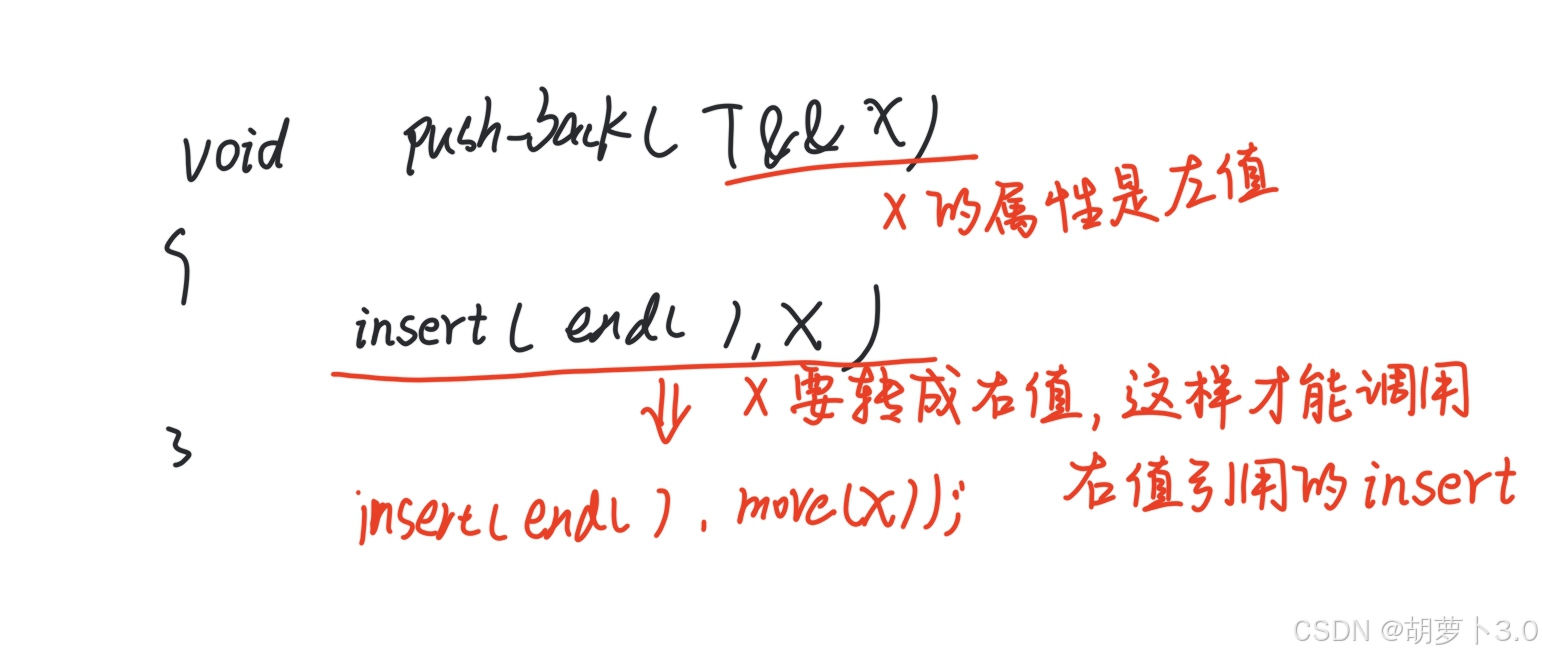 void push_back( T&& x)
x 的属性是左值
{
insert( end( ), x )
x 要转成右值, 这样才能调用
}
右值引用的insert
insert( end( ) , move(x));
CSDN @胡萝卜3.0